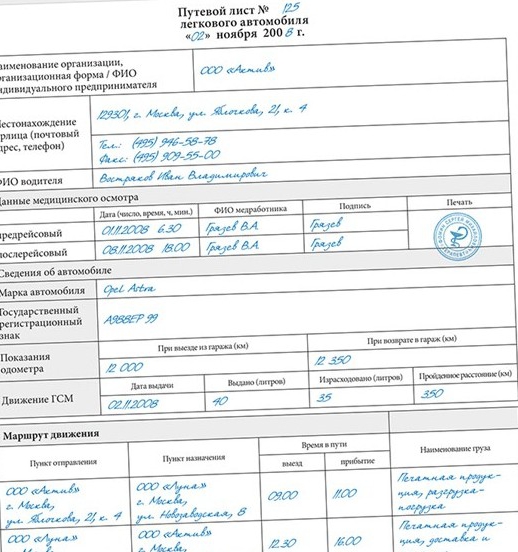 Путевой лист № 125
легкового автомобиля
«02» ноября 2008 г.
аименование организации,
рганизационная форма / ФИО
ндивидуального предпринимателя
ООО «Актив»
естонахождение
рлица (почтовый
дрес, телефон)
129301, г. Москва, ул. Яблочкова, 21, к. 4
Тел.: (495) 946-58-78
Факс: (495) 909-55-00
ФИО водителя
Востряков Иван Владимирович
Данные медицинского осмотра
Дата (число, время, ч, мин.) ФИО медработника Подпись Печать
предрейсовый 01.11.2008 6.30 Грязев В.А. Грязев
послерейсовый 08.11.2008 18.00 Грязев В.А. Грязев
Сведения об автомобиле
Марка автомобиля Opel Astra
Государственный
регистрационный
знак
А988ЕР 99
Показания
одометра
При выезде из гаража (км) При возврате в гараж (км)
12 000 12 350
Движение ГСМ
Дата выдачи Выдано (литров) Израсходовано (литров) Пройденное расстояние (км)
02.11.2008 40 35 350
Маршрут движения
Пункт отправления Пункт назначения Время в пути Наименование груза
выезд прибытие
ООО «Актив» ООО «Луна» 09.00 11.00 Печатная продук-
г. Москва, г. Москва, ция, разгрузка-
ул. Яблочкова, 21, к. 4 ул. Новозаводская, 8 погрузка
ООО «Луна» ООО «Актив» 12.30 16.00 Печатная продук-
г. Москва, г. Москва, ция, доставка и